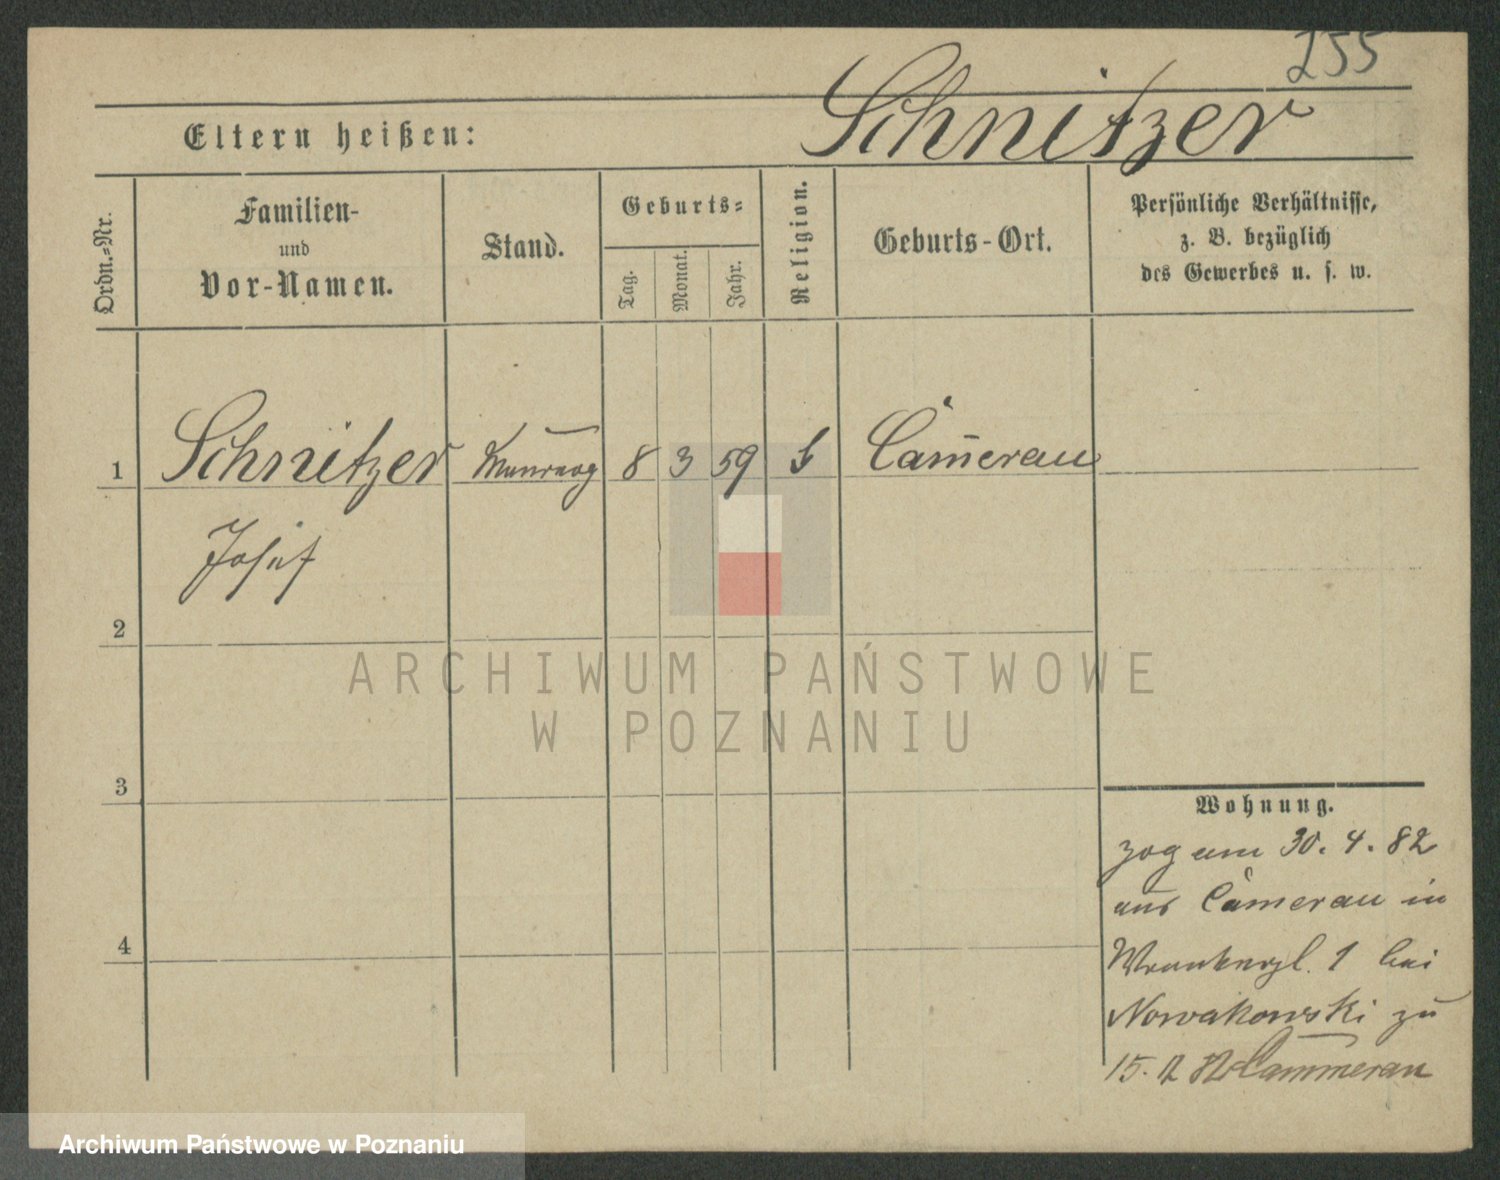 255
Eltern heißen: Schnitzer
Ordn.-Nr.
Familien-
und
Vor-Namen.
Stand.
Geburts-
Tag.
Monat.
Jahr.
Religion.
Geburts-Ort.
Persönliche Verhältnisse,
z. B. bezüglich
des Gewerbes u. s. w.
1 Schnitzer 8 3 59 Camerau
Josef
2
3
4
Wohnung.
zog am 30. 4. 82
aus Camerau in
1 bei
Nowakowski zu
15. 82 Cammerau
ARCHIWUM PAŃSTWOWE
W POZNANIU
Archiwum Państwowe w Poznaniu